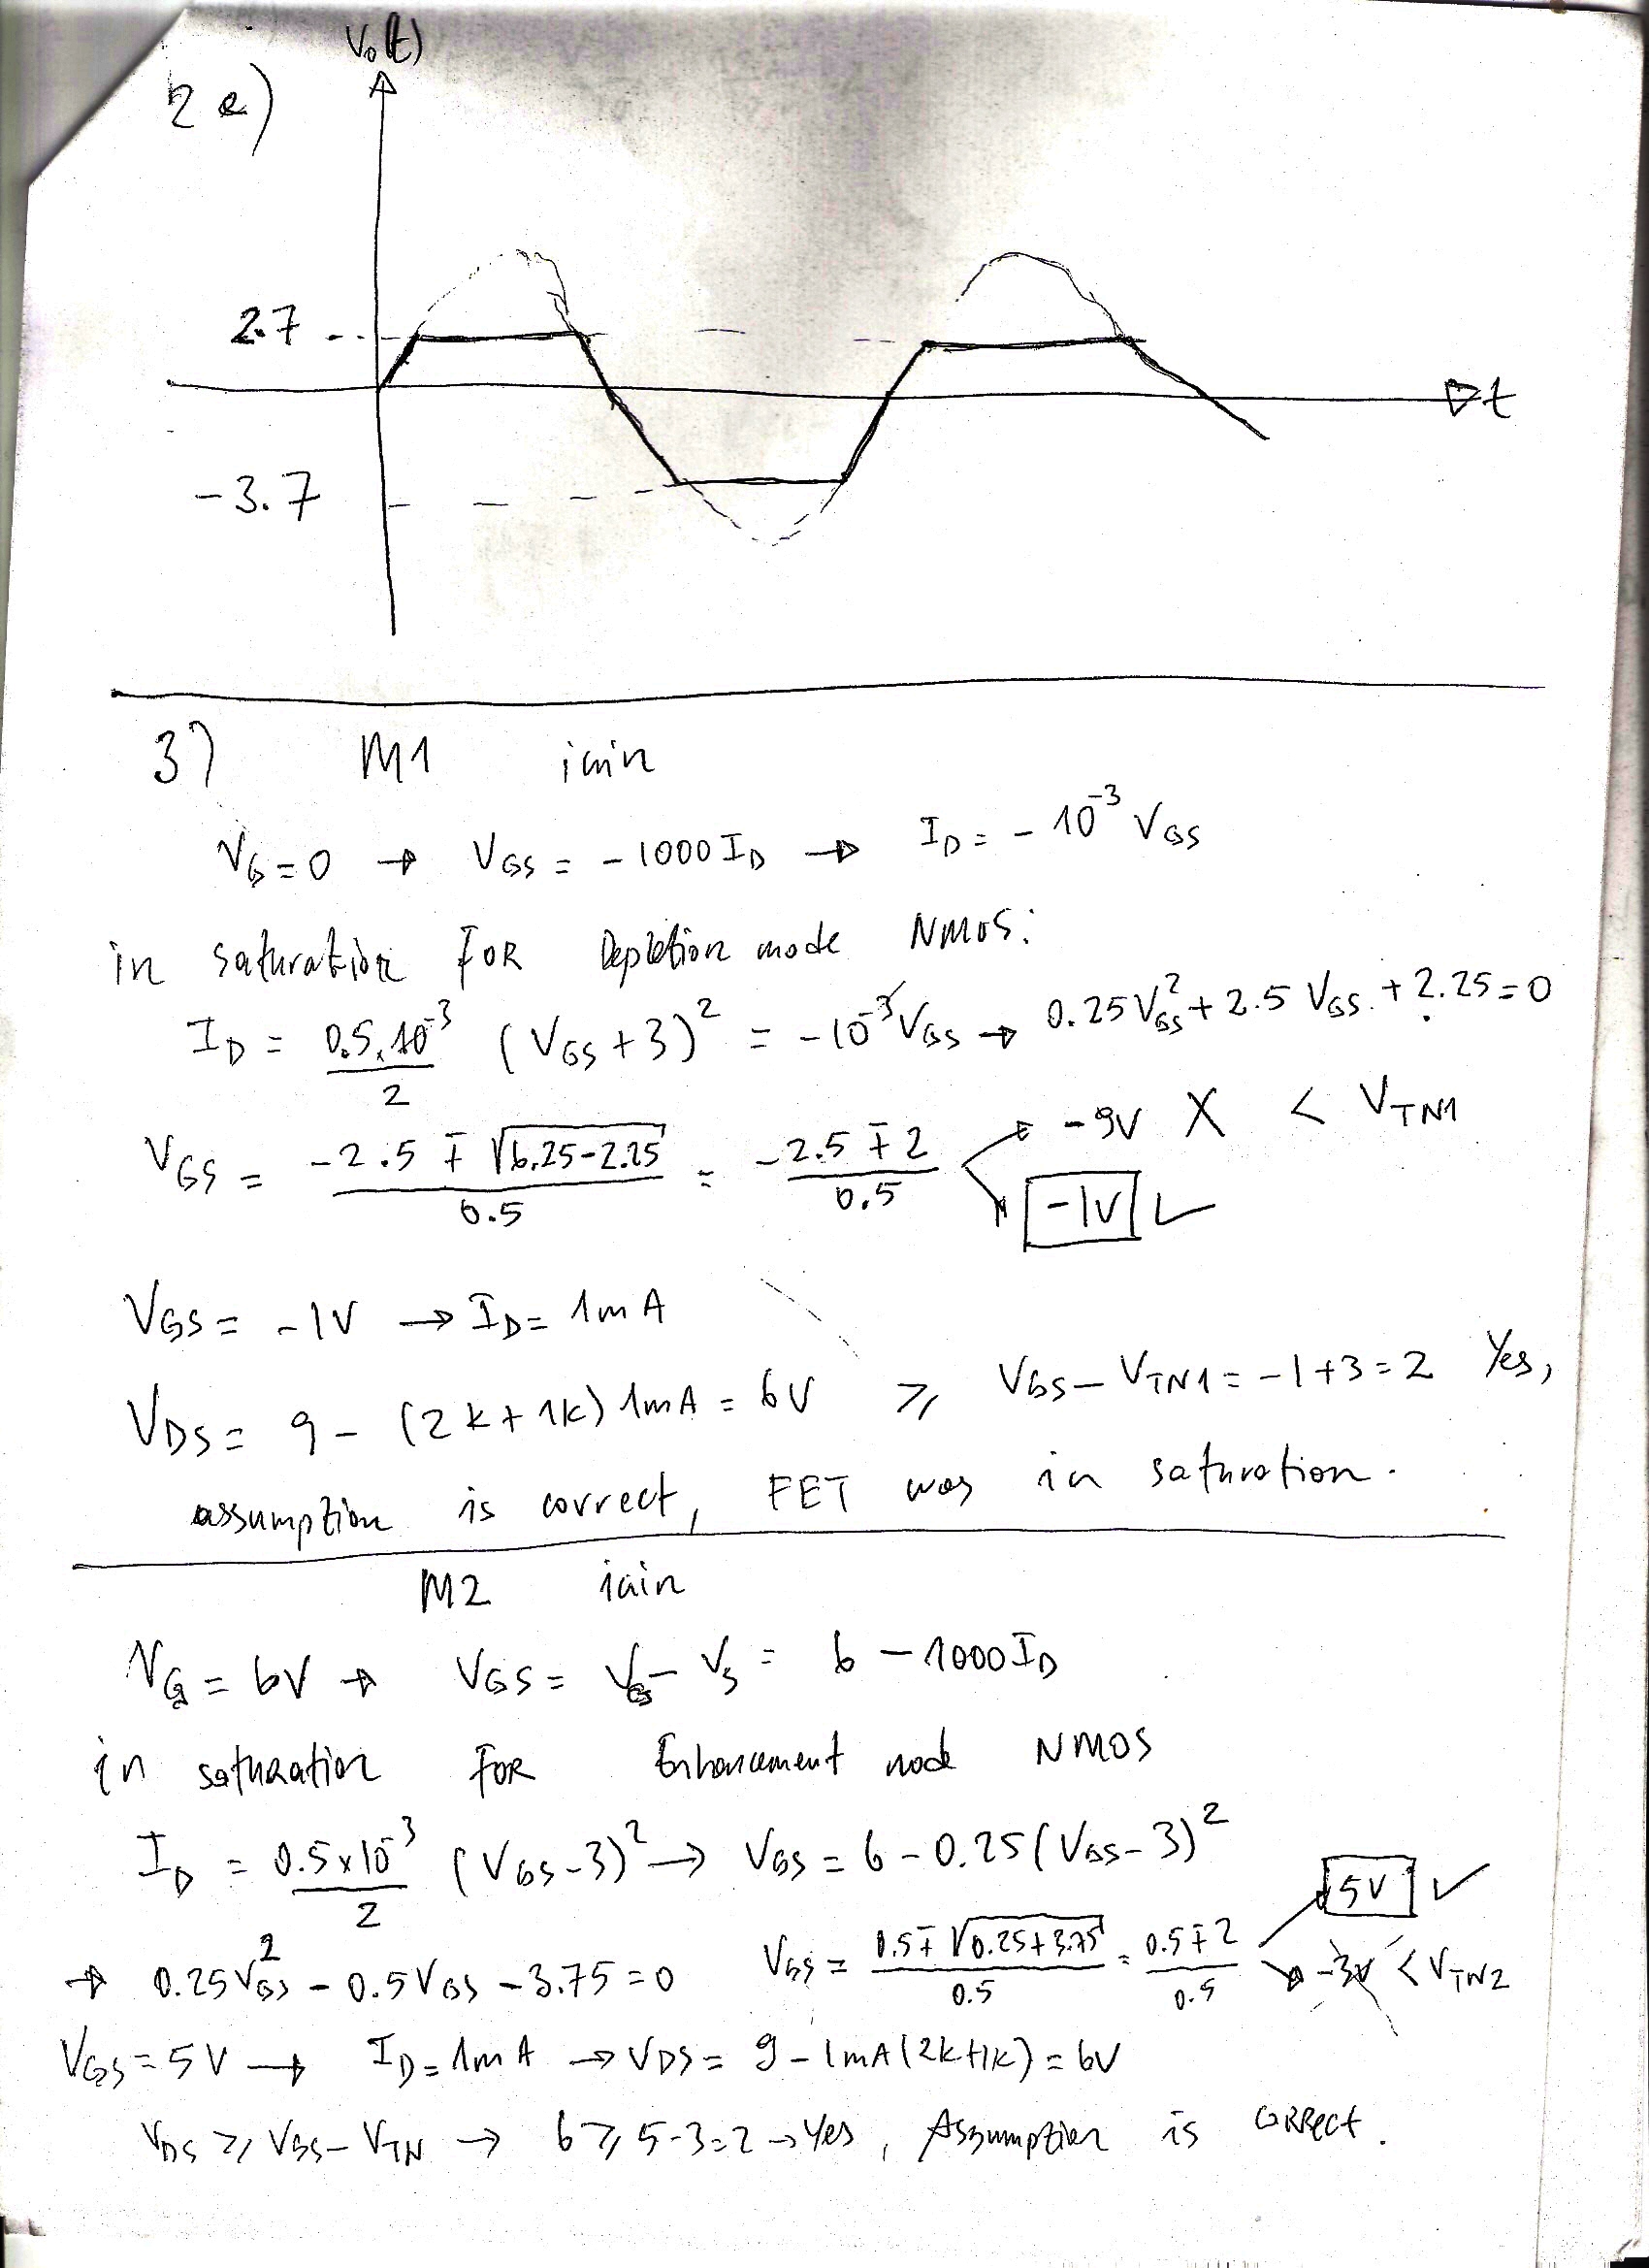 2 e)
Vo(t)
2.7
t
-3.7
3) M1 için
VG=0 → VGS = -1000 ID → ID = -10^-3 VGS
in saturation FOR Depletion mode NMOS:
ID = 0.5.10^-3/2 (VGS+3)^2 = -10^-3 VGS → 0.25 VGS^2 + 2.5 VGS + 2.25 = 0
VGS = (-2.5 ∓ √6.25-2.25)/0.5 = (-2.5 ∓ 2)/0.5 → -9V X < VTN1
-1V ✓
VGS = -1V → ID = 1mA
VDS = 9 - (2k+1k) 1mA = 6V ≥ VGS - VTN1 = -1+3 = 2 Yes,
assumption is correct, FET was in saturation.
M2 için
VG = 6V → VGS = VG - VS = 6 - 1000 ID
in saturation FOR Enhancement mode NMOS
ID = 0.5x10^-3/2 (VGS-3)^2 → VGS = 6 - 0.25(VGS-3)^2
5V ✓
→ 0.25 VGS^2 - 0.5 VGS - 3.75 = 0 VGS = (0.5 ∓ √0.25+3.75)/0.5 = (0.5 ∓ 2)/0.5 → -3V < VTN2
VGS = 5V → ID = 1mA → VDS = 9 - 1mA(2k+1k) = 6V
VDS ≥ VGS - VTN → 6 ≥ 5-3=2 → Yes, Assumption is correct.